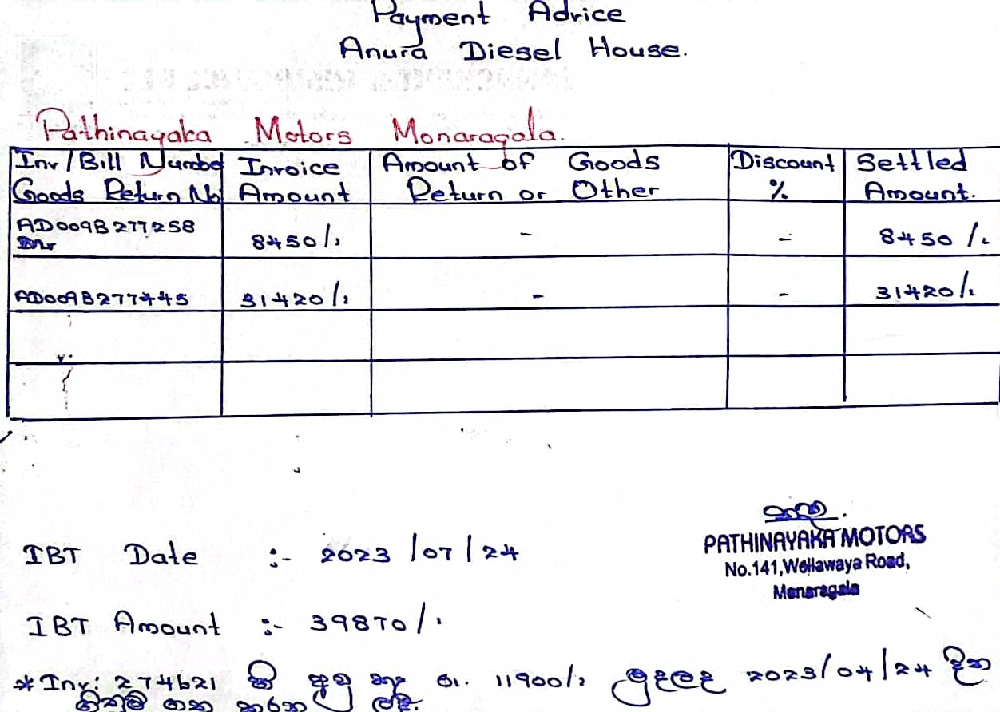 Payment Advice
Anura Diesel House.
Pathinayaka Motors Monaragala.
Inv/Bill Number Invoice Amount of Goods Discount Settled
Goods Return No Amount Return or Other % Amount.
AD009B277258
8450/= - - 8450/=
AD009B277445 31420/= - - 31420/=
IBT Date :- 2023/07/24
PATHINAYAKA MOTORS
No.141,Wellawaya Road,
Monaragala
IBT Amount :- 39870/=
*Inv: 274621 රු. 11900/= මුදලද 2023/04/24 දින